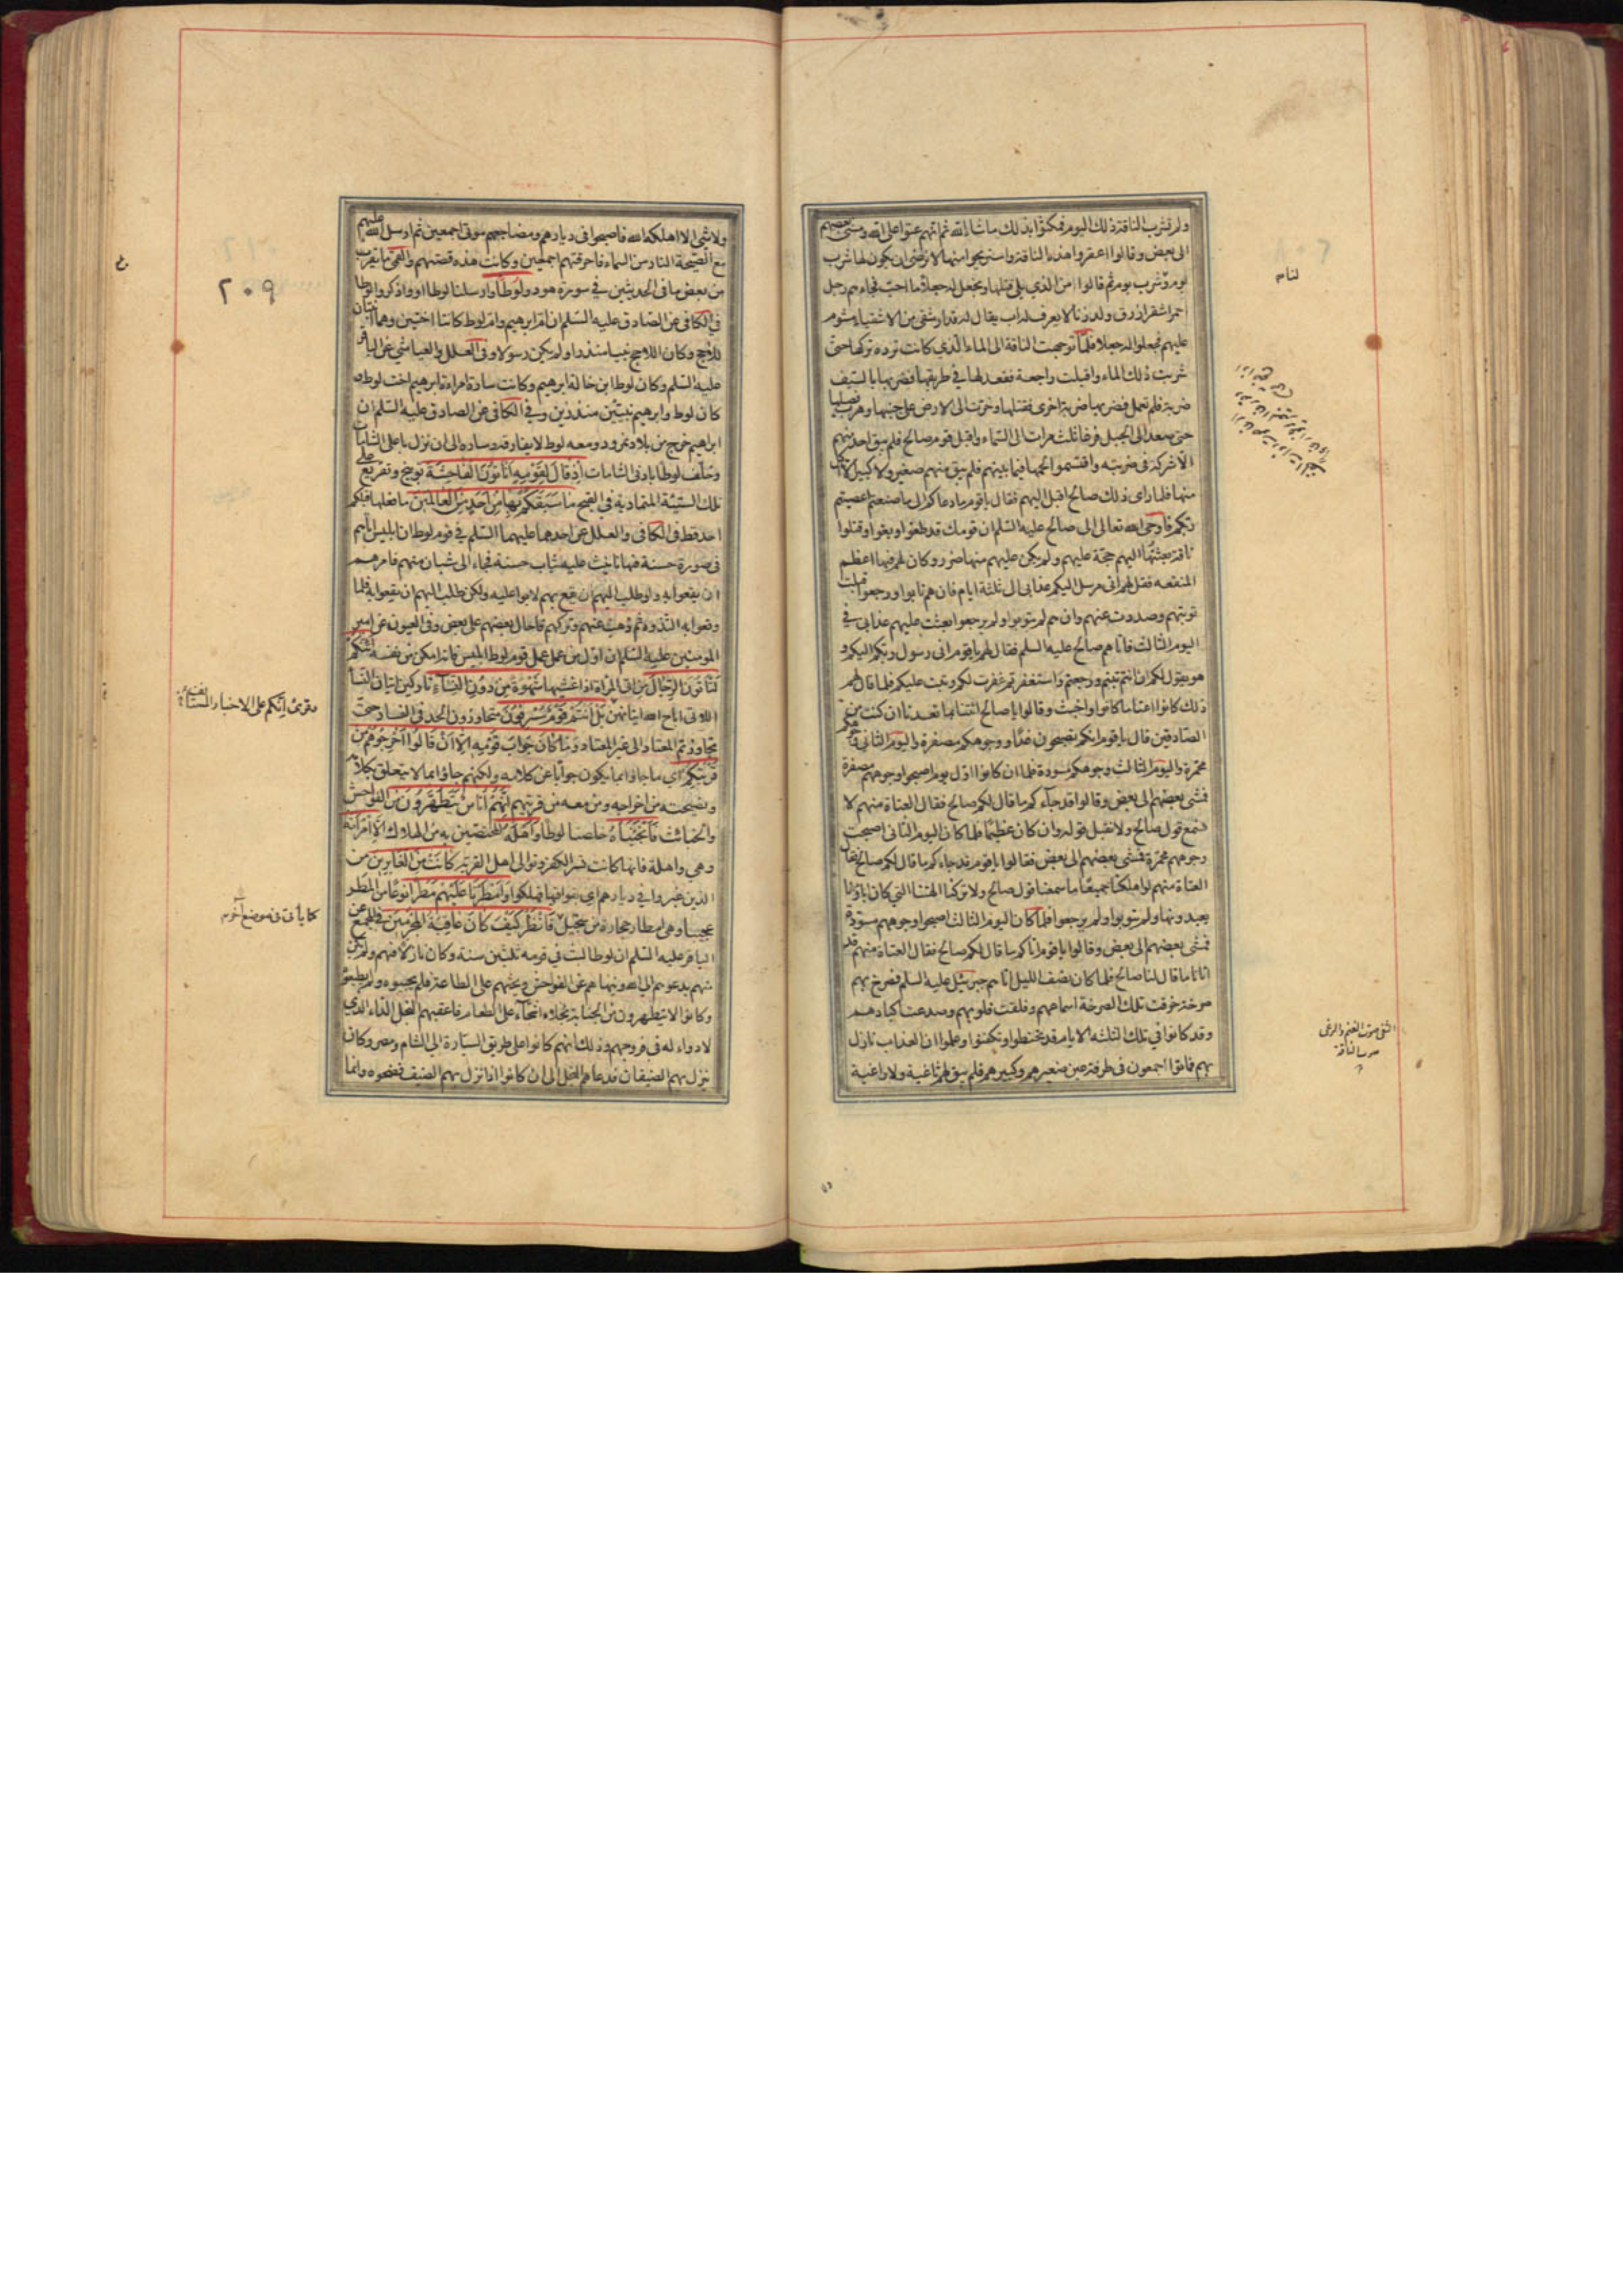 ولم تشرب الناقة ذلك اليوم فمكثوا بذلك ما شاء الله ثم انهم عتوا على الله ومشى بعضهم
الى بعض وقالوا اعقروا هذه الناقة واستريحوا منها لا نرضى ان يكون لها شرب
يوم وشرب يوم ثم قالوا من الذي يلي قتلها ونجعل له جعلا ما احب فجاءهم رجل
احمر اشقر ازرق ولد زنا لا يعرف له اب يقال له قدار شقي من الاشقياء مشوم
عليهم فجعلوا له جعلا فلما توجهت الناقة الى الماء الذي كانت ترده تركها حتى
شربت ذلك الماء واقبلت راجعة فقعد لها في طريقها فضربها بالسيف
ضربة فلم تعمل فضربها ضربة اخرى فقتلها وخرت الى الارض على جنبها وهرب فصيلها
حتى صعد الى الجبل فرغا ثلث مرات الى السماء واقبل قوم صالح فلم يبق احد منهم
الا شركه في ضربته واقتسموا لحمها فيما بينهم فلم يبق منهم صغير ولا كبير الا اكل
منها فلما راى ذلك صالح اقبل اليهم فقال يا قوم ما دعاكم الى ما صنعتم اعصيتم
ربكم فاوحى الله تعالى الى صالح عليه السلم ان قومك قد طغوا وبغوا وقتلوا
ناقة بعثتها اليهم حجة عليهم ولم يكن عليهم منها ضرر وكان لهم فيها اعظم
المنفعه فقل لهم اني مرسل اليكم عذابي الى ثلثة ايام فان هم تابوا ورجعوا قبلت
توبتهم وصددت عنهم وان هم لم يتوبوا ولم يرجعوا بعثت عليهم عذابي في
اليوم الثالث فاتاهم صالح عليه السلم فقال لهم يا قوم اني رسول ربكم اليكم و
هو يقول لكم ان انتم تبتم ورجعتم واستغفرتم غفرت لكم وتبت عليكم فلما قال لهم
ذلك كانوا اعتا ما كانوا واخبث وقالوا يا صالح ائتنا بما تعدنا ان كنت من
الصادقين قال يا قوم انكم تصبحون غدا ووجوهكم مصفرة واليوم الثاني وجوهكم
محمرة واليوم الثالث وجوهكم مسودة فلما ان كانوا اول يوم اصبحوا وجوههم مصفرة
فمشى بعضهم الى بعض وقالوا قد جاءكم ما قال لكم صالح فقال العتاة منهم لا
نسمع قول صالح ولا نقبل قوله وان كان عظيما فلما كان اليوم الثاني اصبحت
وجوههم محمرة فمشى بعضهم الى بعض فقالوا يا قوم قد جاءكم ما قال لكم صالح فقال
العتاة منهم لو اهلكنا جميعا ما سمعنا قول صالح ولا تركنا الهتنا التي كان اباؤنا
يعبدونها ولم يتوبوا ولم يرجعوا فلما كان اليوم الثالث اصبحوا ووجوههم مسودة
فمشى بعضهم الى بعض وقالوا يا قوم اتاكم ما قال لكم صالح فقال العتاة منهم قد
اتانا ما قال لنا صالح فلما كان نصف الليل اتاهم جبرئيل عليه السلم فصرخ بهم
صرخة خرقت تلك الصرخة اسماعهم وفلقت قلوبهم وصدعت اكبادهم
وقد كانوا في تلك الثلثه الايام قد تحنطوا وتكفنوا وعلموا ان العذاب نازل
بهم فماتوا اجمعون في طرفة عين صغيرهم وكبيرهم فلم يبق لهم ثاغية ولا راغية
الثغى صوت الغنم والرغى
صوت الناقة
ولا شئ الا اهلكه الله فاصبحوا في ديارهم ومضاجعهم موتى اجمعين ثم ارسل الله عليهم
مع الصيحة النار من السماء فاحرقتهم اجمعين وكانت هذه قصتهم والقمي ما يقرب
من بعض ما في الحديثين في سورة هود ولوطا وارسلنا لوطا او واذكروا لوطا
في الكافي عن الصادق عليه السلم ان ام ابرهيم وام لوط كانتا اختين وهما ابنتان
للاحج وكان اللاحج نبيا منذرا ولم يكن رسولا وفي العلل والعياشي عن الباقر
عليه السلم وكان لوط ابن خالة ابرهيم وكانت سارة امراة ابرهيم اخت لوط و
كان لوط وابرهيم نبيين منذرين وفي الكافي عن الصادق عليه السلم ان
ابرهيم خرج من بلاد نمرود ومعه لوط لا يفارقه وساره الى ان نزل باعلى الشامات
وخلف لوطا بادنى الشامات اذ قال لقومه اتاتون الفاحشة توبيخ وتقريع على
تلك السيئة المتمادية في القبح ما سبقكم بها من احد من العالمين ما فعلها قبلكم
احد قط في الكافي والعلل عن احدهما عليهما السلم في قوم لوط ان ابليس اتاهم
في صورة حسنة فيها تانيث عليه ثياب حسنة فجاء الى شبان منهم فامرهم
ان يقعوا به ولو طلب اليهم ان يقع بهم لابوا عليه ولكن طلب اليهم ان يقعوا به فلما
وقعوا به التذوه ثم ذهب عنهم وتركهم فاحال بعضهم على بعض وفي العيون عن امير
المومنين عليه السلم ان اول من عمل عمل قوم لوط ابليس فانه امكن من نفسه ائنكم
لتاتون الرجال من اتى المراة اذا غشيها شهوة من دون النساء تاركين اتيان النساء
اللاتي اباح الله اتيانهن بل انتم قوم مسرفون متجاوزون الحد في الفساد حتى
تجاوزتم المعتاد الى غير المعتاد وما كان جواب قومه الا ان قالوا اخرجوهم من
قريتكم اي ما جاؤا بما يكون جوابا عن كلامه ولكنهم جاؤا بما لا يتعلق بكلامه
ونصيحته من اخراجه ومن معه من قريتهم انهم اناس يتطهرون من الفواحش
والخبائث فانجيناه خلصنا لوطا واهله المختصين به من الهلاك الا امراته
وهي واهلة فانها كانت تسر الكفر وتوالي اهل القرية كانت من الغابرين من
الذين غبروا في ديارهم اي بقوا فيها فهلكوا وامطرنا عليهم مطرا نوعا من المطر
عجيبا وهي امطار حجارة من سجيل فانظر كيف كان عاقبة المجرمين في المجمع عن
الباقر عليه السلم ان لوطا لبث في قومه ثلثين سنة وكان نازلا فيهم ولم يكن
منهم يدعوهم الى الله وينهاهم عن الفواحش ويحثهم على الطاعة فلم يجيبوه ولم يطيعوه
وكانوا لا يتطهرون من الجنابة بخلاء اشحاء على الطعام فاعقبهم البخل الداء الذي
لا دواء له في فروجهم وذلك انهم كانوا على طريق السيارة الى الشام ومصر وكان
ينزل بهم الضيفان فدعاهم البخل الى ان كانوا اذا نزل بهم الضيف فضحوه وانما
٢٠٩
وقرئ انكم على الاخبار المستانف
كما يأتي في موضع آخر